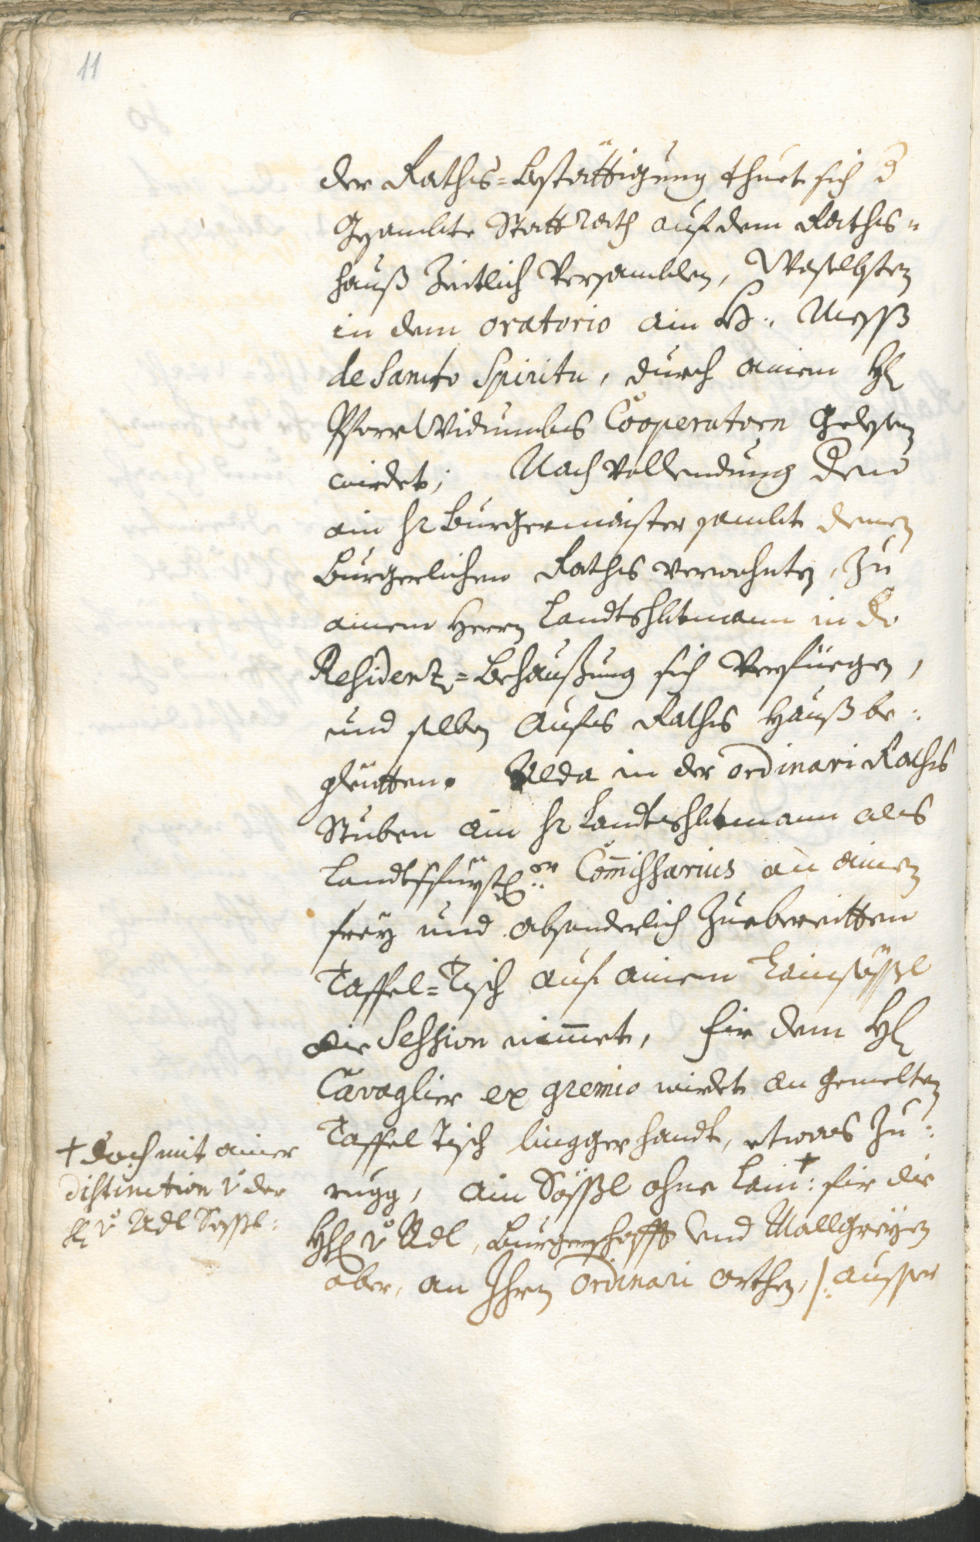 11
der Raths=bstättigung thuet sich d
Gesambte Stattrath auf dem Raths=
hauß Zeitlich Versamblen, Woselbsten
in dem oratorio ain H: Mesß
de Sancto Spiritu, durch ainem H
PfarrWidumbs Cooperatorn gelesen
wirdet; Nach Vollendung dene
ain hr Burgermaister sambt denen
Burgerlichen Raths verwohnten, Zu
ainem Herrn Landtshbtmann in die
Residenz=Behaußung sich Verfüegen,
und selben aufs Raths Hauß be:
gleitten. Alda in der ordinari Raths
Stuben ain hr Landtshbtmann als
Landtsfürstl:er Commissarius an ainen
frey und absonderlich Zuebereitten
Taffel=Tisch auf ainem Lainsössl
die Session nimmet, für dem H
Cavaglier ex gremio wirdet an gemelten
Taffel Tisch lingger handt, etwas Zu:
rugg, ain Sössl ohne Lain: † für die
HH v Adl, Burgerschafft und Mallgreyen
aber, an Ihren ordinari orthen, /: ausser
† doch mit ainer
distinction v der
H v Adl Sössl: